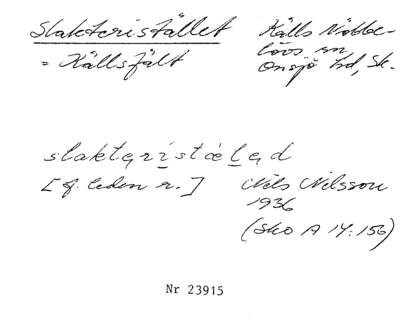 Slakteristället
Källs Nöbbe-
= Källsfält
lövs sn
Onsjö hd, Sk.
slakteristäled
[f. leden r.]
Nils Nilsson
1936
(Sko A 14:156)
Nr 23915